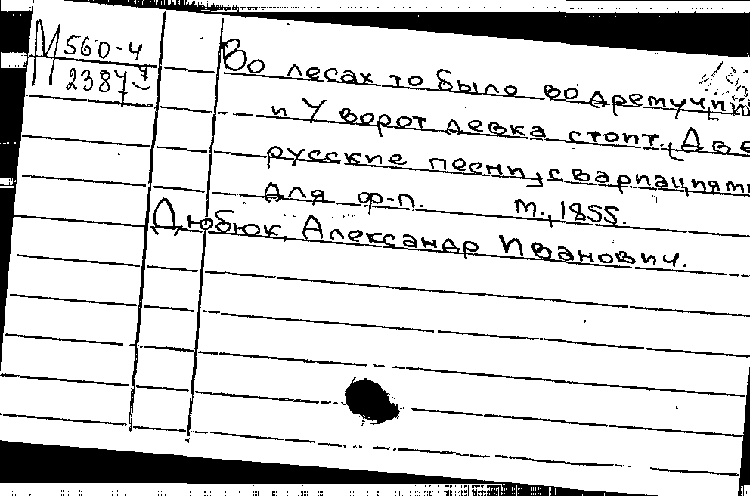 М 560-4
2387
Во лесах то было во дремучи
и У ворот девка стоит. Две
русские песни, с вариациями
для ф-п. М., 1855.
Дюбюк, Александр Иванович.